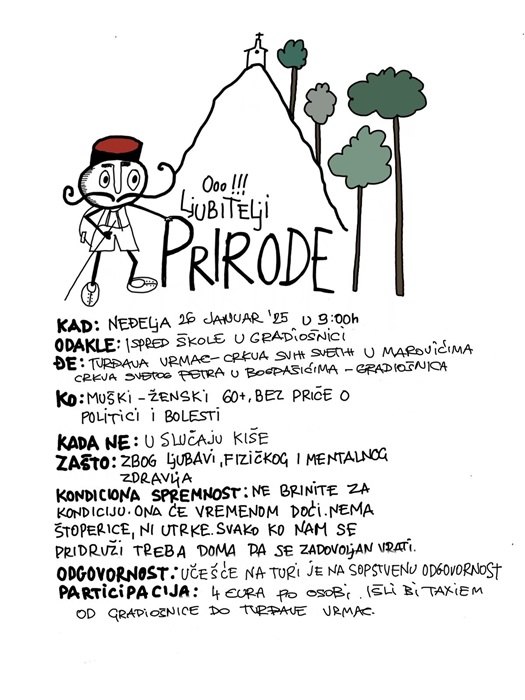 Ooo !!!
LJUBITELJI
PRIRODE
KAD: NEDELJA 26 JANUAR '25 U 9:00h
ODAKLE: ISPRED ŠKOLE U GRADIOŠNICI
ĐE: TURĐAVA VRMAC - CRKVA SVIH SVETIH U MAROVIĆIMA
CRKVA SVETOG PETRA U BOGDAŠIĆIMA - GRADIOŠNICA
KO: MUŠKI - ŽENSKI 60+, BEZ PRIČE O
POLITICI I BOLESTI
KADA NE: U SLUČAJU KIŠE
ZAŠTO: ZBOG LJUBAVI, FIZIČKOG I MENTALNOG
ZDRAVLJA
KONDICIONA SPREMNOST: NE BRINITE ZA
KONDICIJU. ONA ĆE VREMENOM DOĆI. NEMA
ŠTOPERICE, NI UTRKE. SVAKO KO NAM SE
PRIDRUŽI TREBA DOMA DA SE ZADOVOLJAN VRATI.
ODGOVORNOST: UČEŠĆE NA TURI JE NA SOPSTVENU ODGOVORNOST
PARTICIPACIJA: 4 EURA PO OSOBI. IŠLI BI TAXIEM
OD GRADIOSNICE DO TURĐAVE VRMAC.